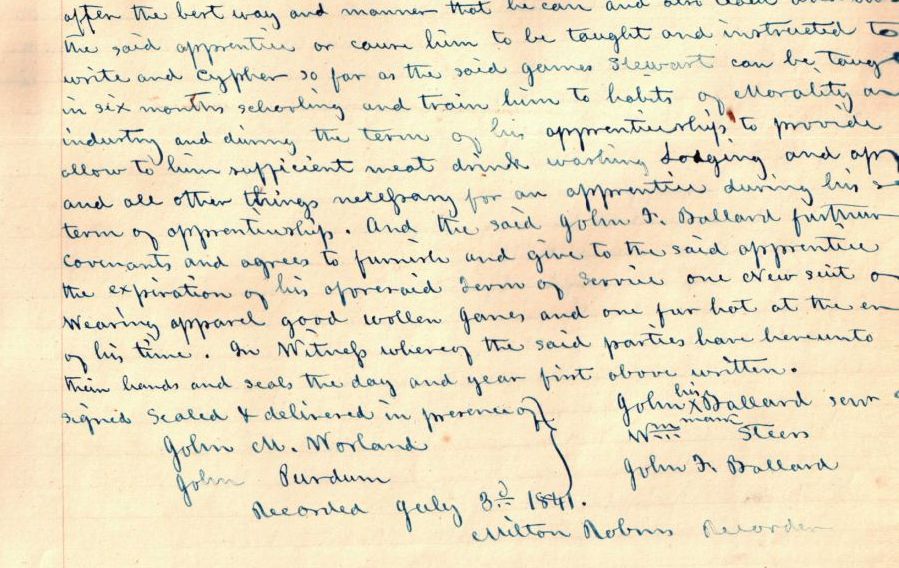 after the best way and manner that he can and also
the said apprentice or cause him to be taught and instructed to
write and Cypher so far as the said James Stewart can be taug
in six months schooling and train him to habits of Morality an
industry and during the term of his apprenticeship to provide
allow to him sufficient meat drink washing Lodging and ap
and all other things necessary for an apprentice during his s
term of apprenticeship. And the said John F. Ballard further
Covenants and agrees to furnish and give to the said apprentice
the expiration of his aforesaid Term of Service one New suit o
Wearing apparel good wollen Janes and one fur hat at the en
of his time. In Witness whereof the said parties have hereunto
their hands and seals the day and year first above written.
signed Sealed & delivered in presence of
John his X mark Ballard senr
Wm Steers
John F. Ballard
John M. Worland
John Purdum
Recorded July 3d 1841.
Milton Robins Recorder